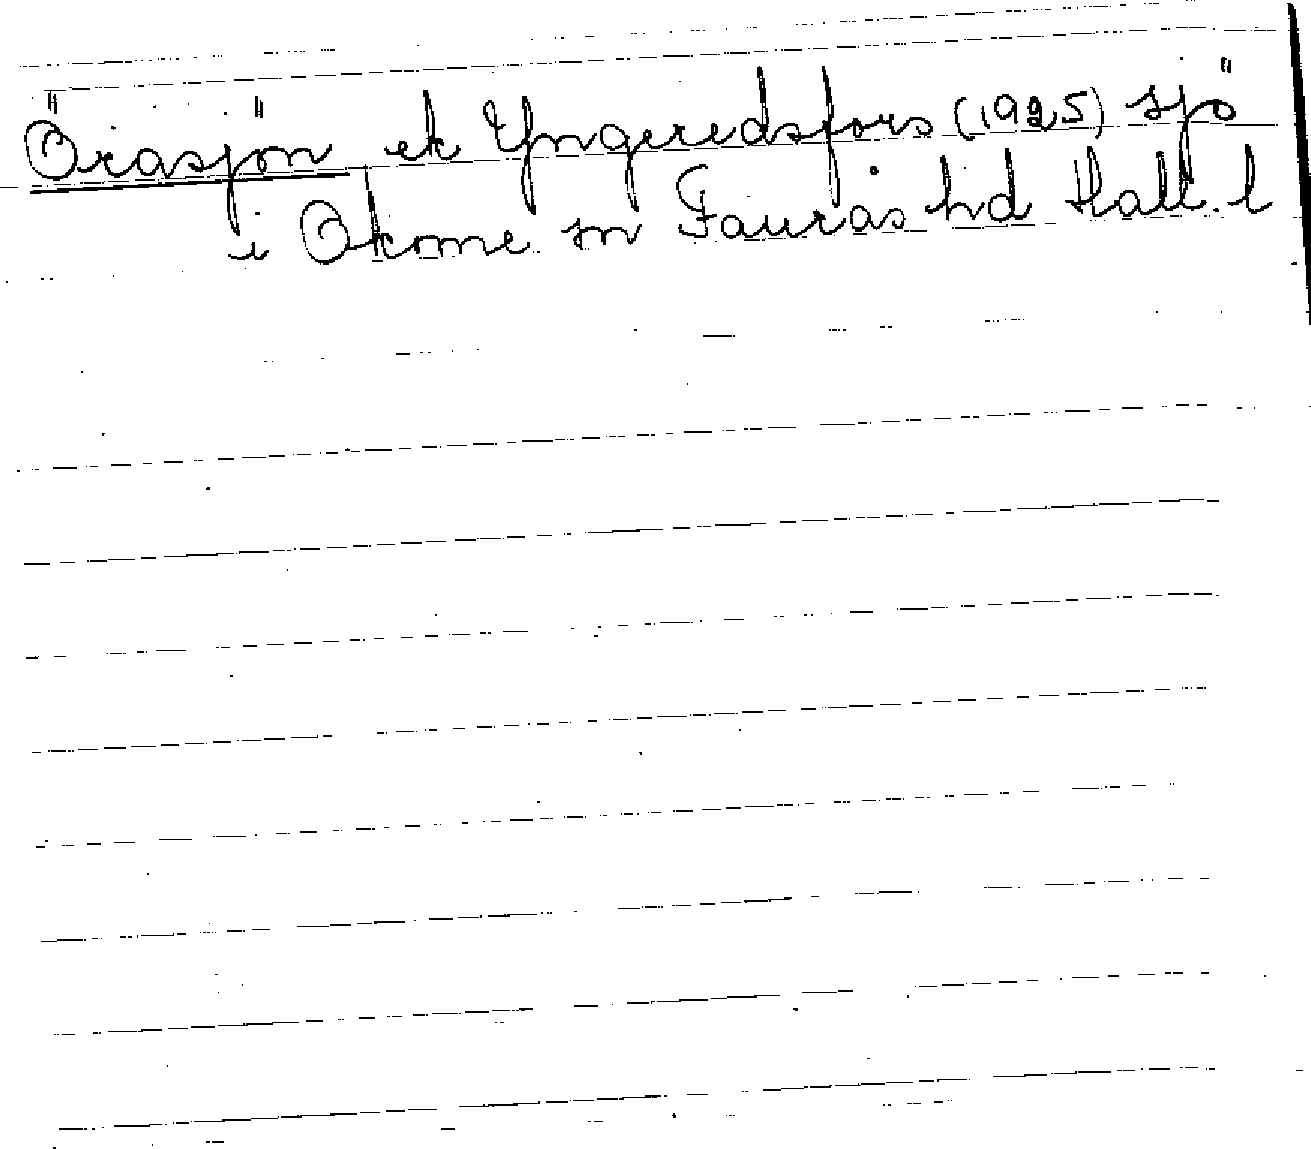 Örasjön ek Yngeredsfors (1925) sjö
i Okome sn Faurås hd Hall. l